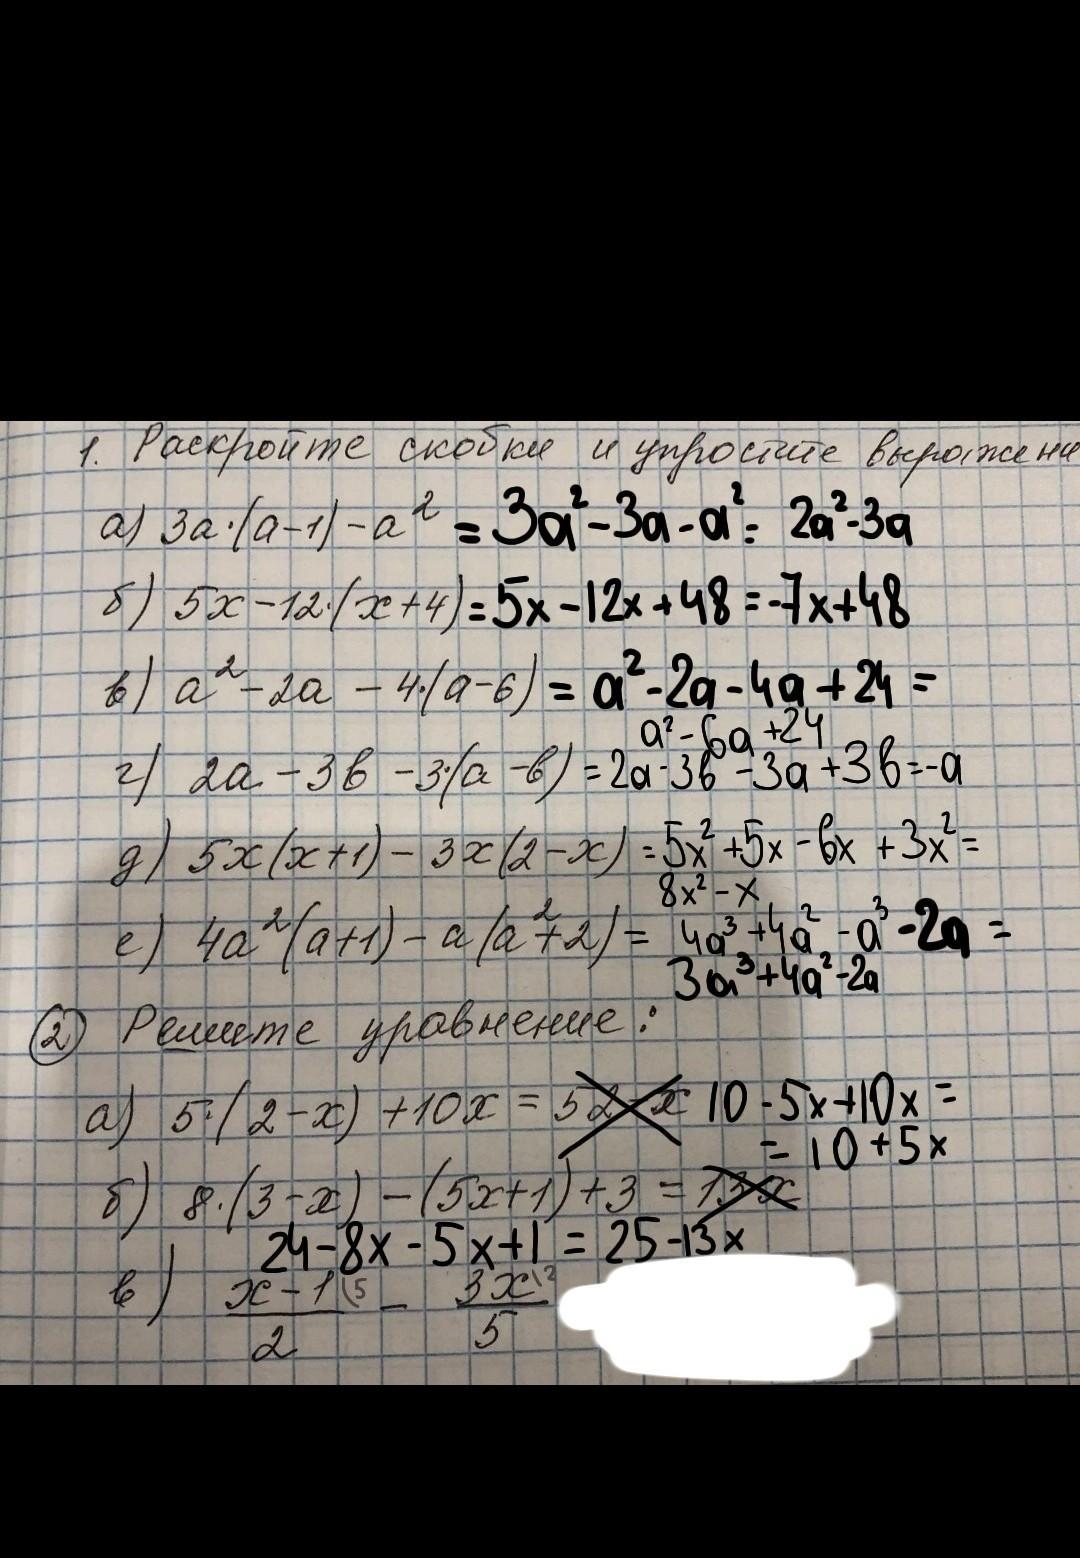 1. Раскройте скобки и упростите выражени
а) 3a·(a-1)-a² = 3a²-3a-a²= 2a²-3a
б) 5x-12·(x+4)=5x-12x+48=-7x+48
в) a²-2a-4·(a-6) = a²-2a-4a+24 =
a²-6a+24
г) 2a-3b-3·(a-b)=2a-3b-3a+3b=-a
д) 5x(x+1)-3x(2-x)=5x²+5x-6x+3x²=
8x²-x
е) 4a²(a+1)-a(a²+2)= 4a³+4a²-a³-2a =
3a³+4a²-2a
2) Решите уравнение:
а) 5·(2-x)+10x = 52-x 10-5x+10x =
= 10+5x
б) 8·(3-x)-(5x+1)+3=
24-8x-5x+1 = 25-13x
в) (x-1)/2 (5 - 3x/5 \2